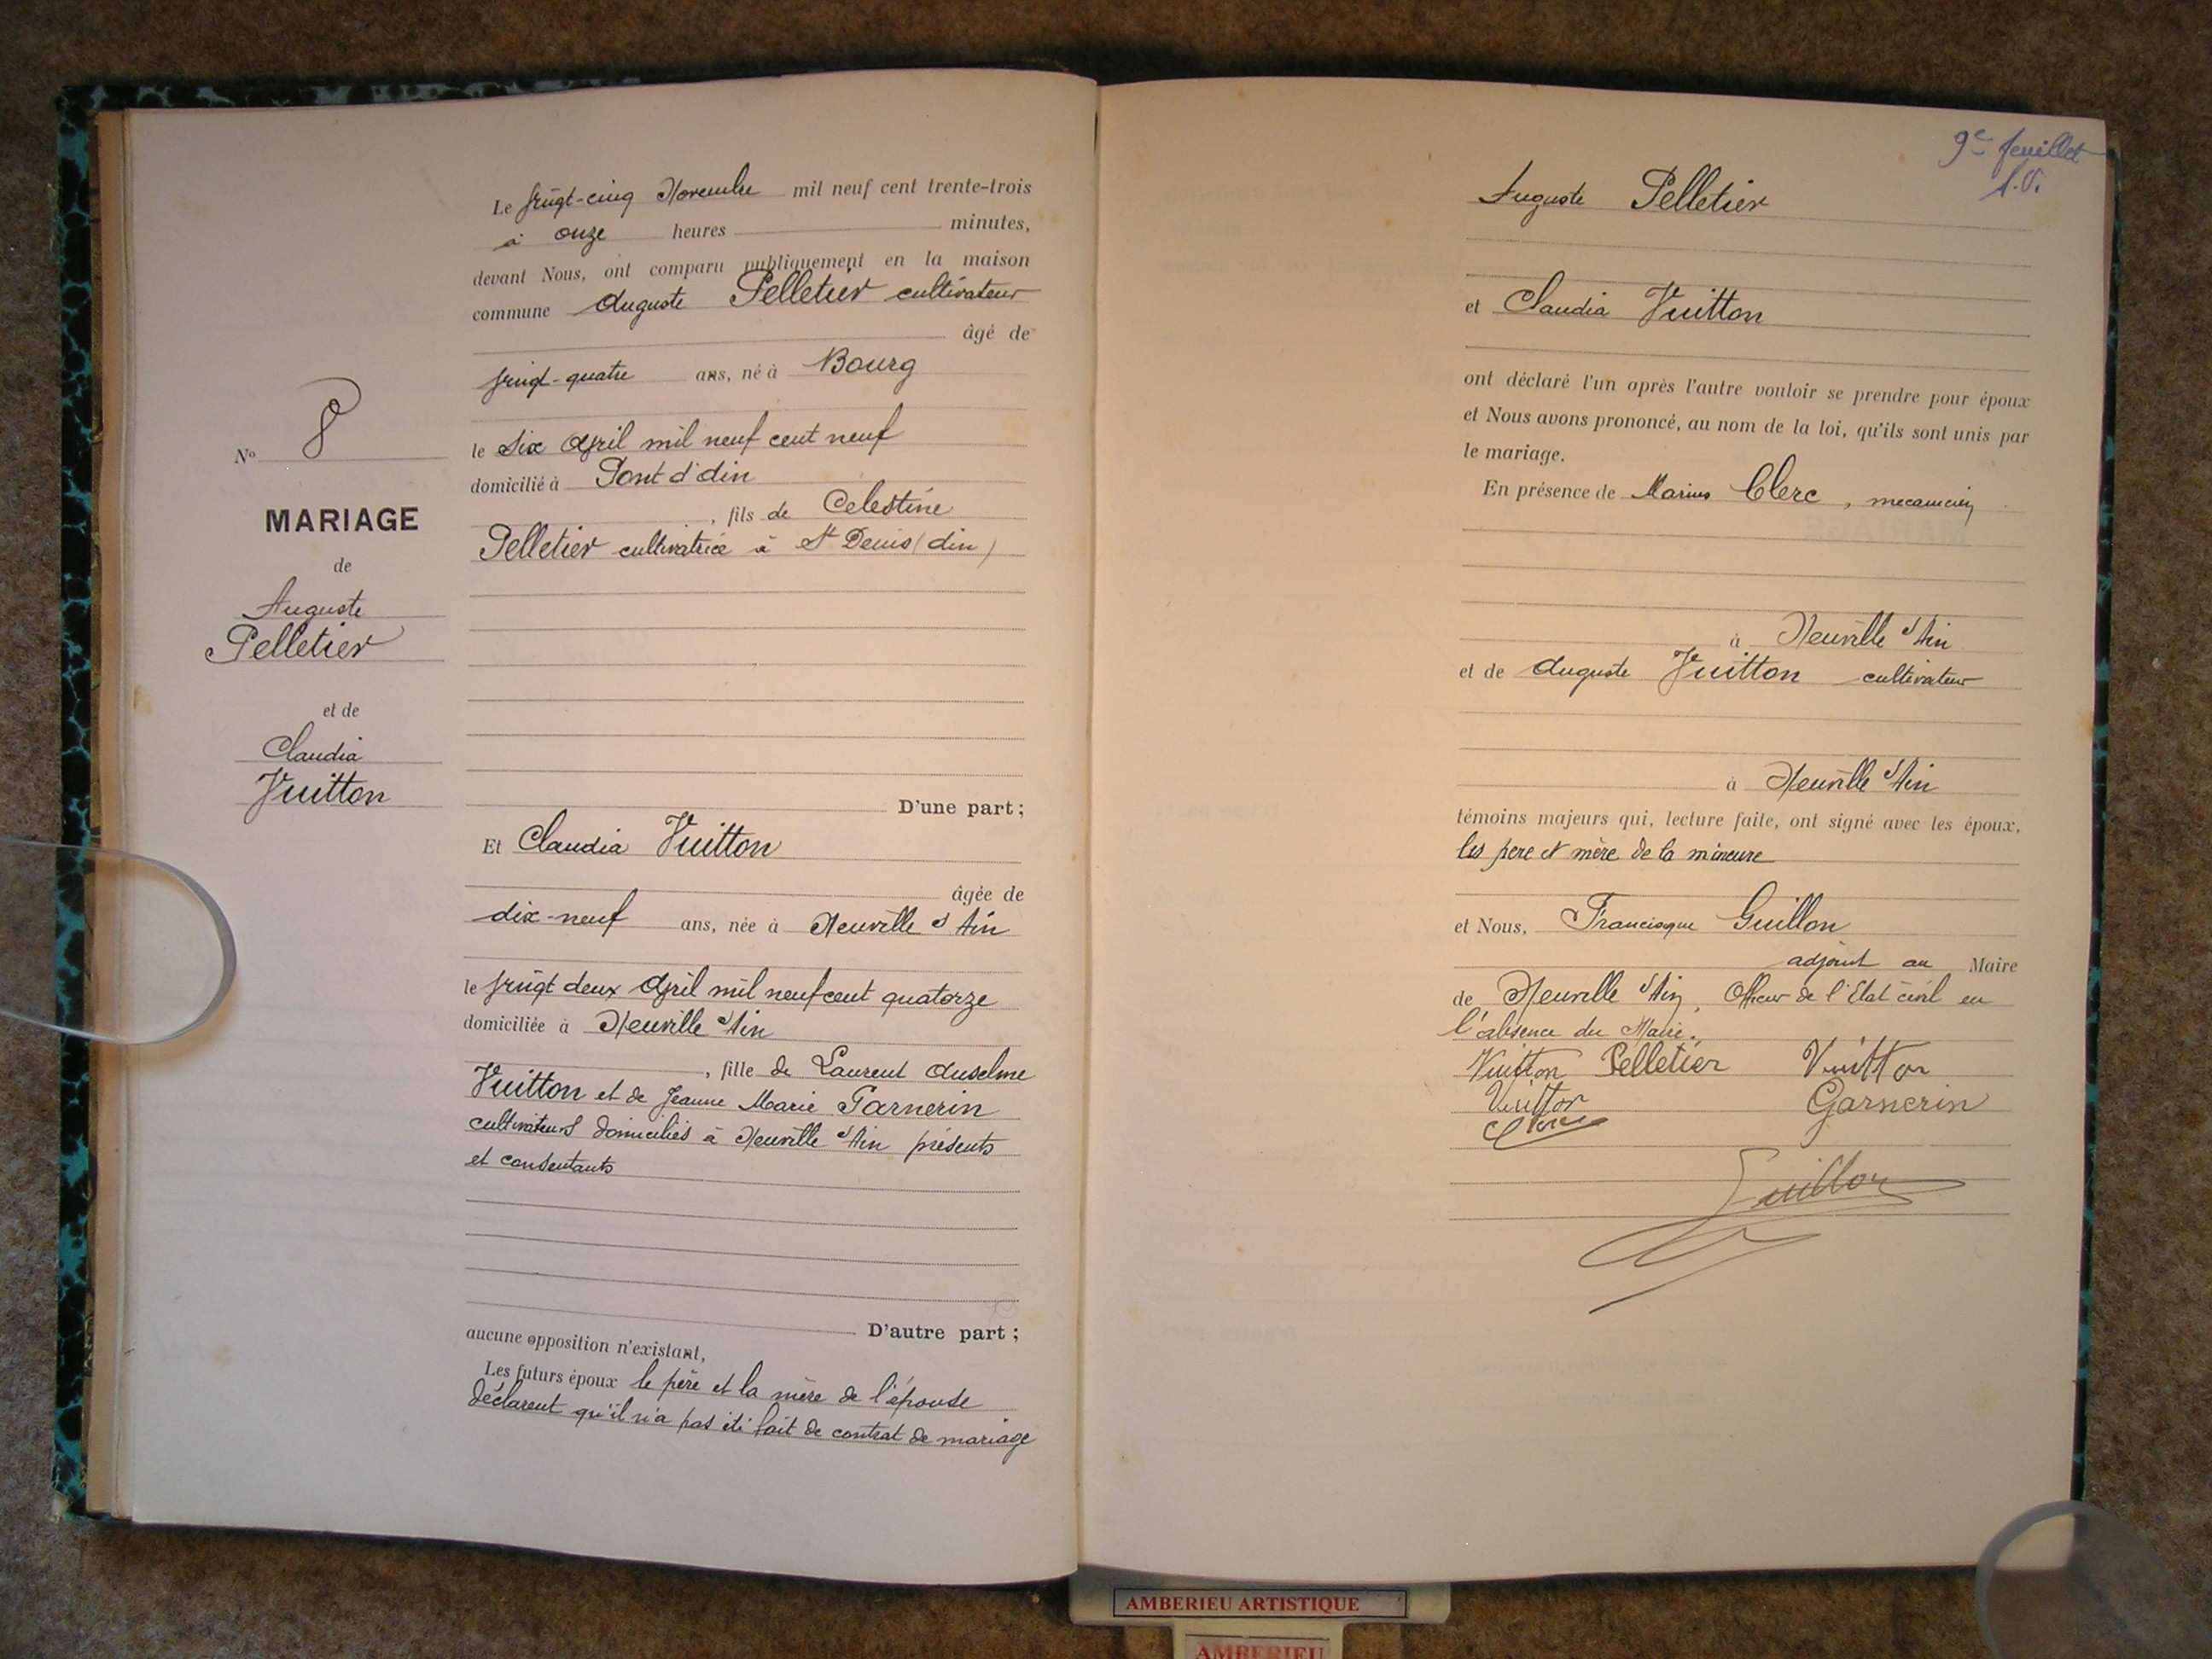 Le Vingt-cinq Novembre mil neuf cent trente-trois
à onze heures minutes,
devant Nous, ont comparu publiquement en la maison
commune Auguste Pelletier cultivateur
âgé de
vingt-quatre ans, né à Bourg
le Six Avril mil neuf cent neuf
domicilié à Pont d'Ain
, fils de Celestine
Pelletier cultivatrice à St Denis (Ain)
D'une part;
Nº 8
MARIAGE
de
Auguste
Pelletier
et de
Claudia
Vuitton
Et Claudia Vuitton
âgée de
dix-neuf ans, née à Neuville s/ Ain
le Vingt deux Avril mil neuf cent quatorze
domiciliée à Neuville s/ Ain
, fille de Laurent Anselme
Vuitton et de Jeanne Marie Garnerin
cultivateurs domiciliés à Neuville s/ Ain présents
et consentants
D'autre part;
aucune opposition n'existant,
Les futurs époux le père et la mère de l'épouse
déclarent qu'il n'a pas été fait de contrat de mariage
9e feuillet
Auguste Pelletier
et Claudia Vuitton
ont déclaré l'un après l'autre vouloir se prendre pour époux
et Nous avons prononcé, au nom de la loi, qu'ils sont unis par
le mariage.
En présence de Marius Clerc, mecanicien
à Neuville s/ Ain
et de Auguste Vuitton cultivateur
à Neuville s/ Ain
témoins majeurs qui, lecture faite, ont signé avec les époux,
les pere et mère de la mineure
et Nous, Francisque Guillon
adjoint au Maire
de Neuville s/ Ain, Officier de l'Etat civil en
l'absence du Maire.
Vuitton Pelletier Vuitton
Vuitton Garnerin
Clerc
Guillon
AMBERIEU ARTISTIQUE
AMBERIEU